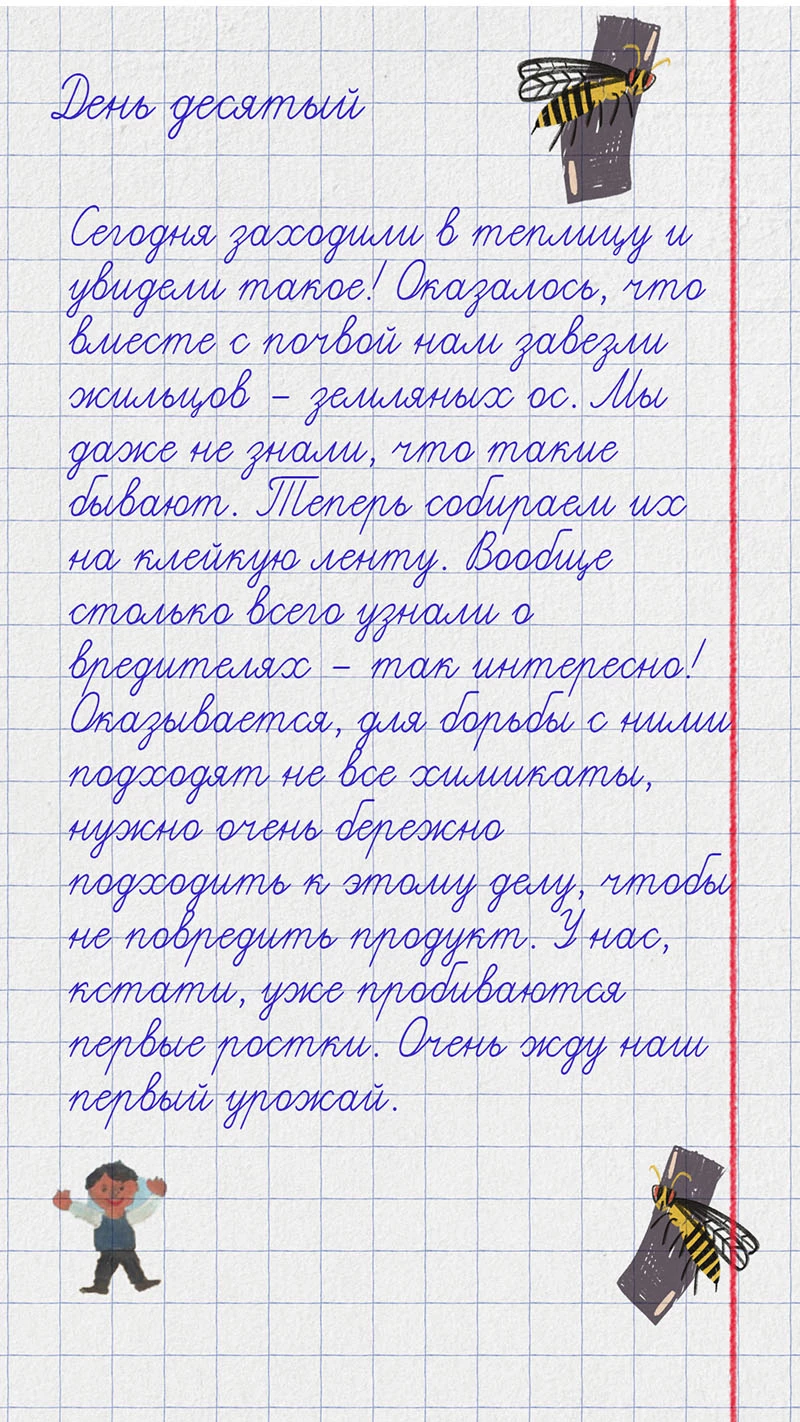 День десятый
Сегодня заходили в теплицу и
увидели такое! Оказалось, что
вместе с почвой нам завезли
жильцов – земляных ос. Мы
даже не знали, что такие
бывают. Теперь собираем их
на клейкую ленту. Вообще
столько всего узнали о
вредителях – так интересно!
Оказывается, для борьбы с ними
подходят не все химикаты,
нужно очень бережно
подходить к этому делу, чтобы
не повредить продукт. У нас,
кстати, уже пробиваются
первые ростки. Очень жду наш
первый урожай.